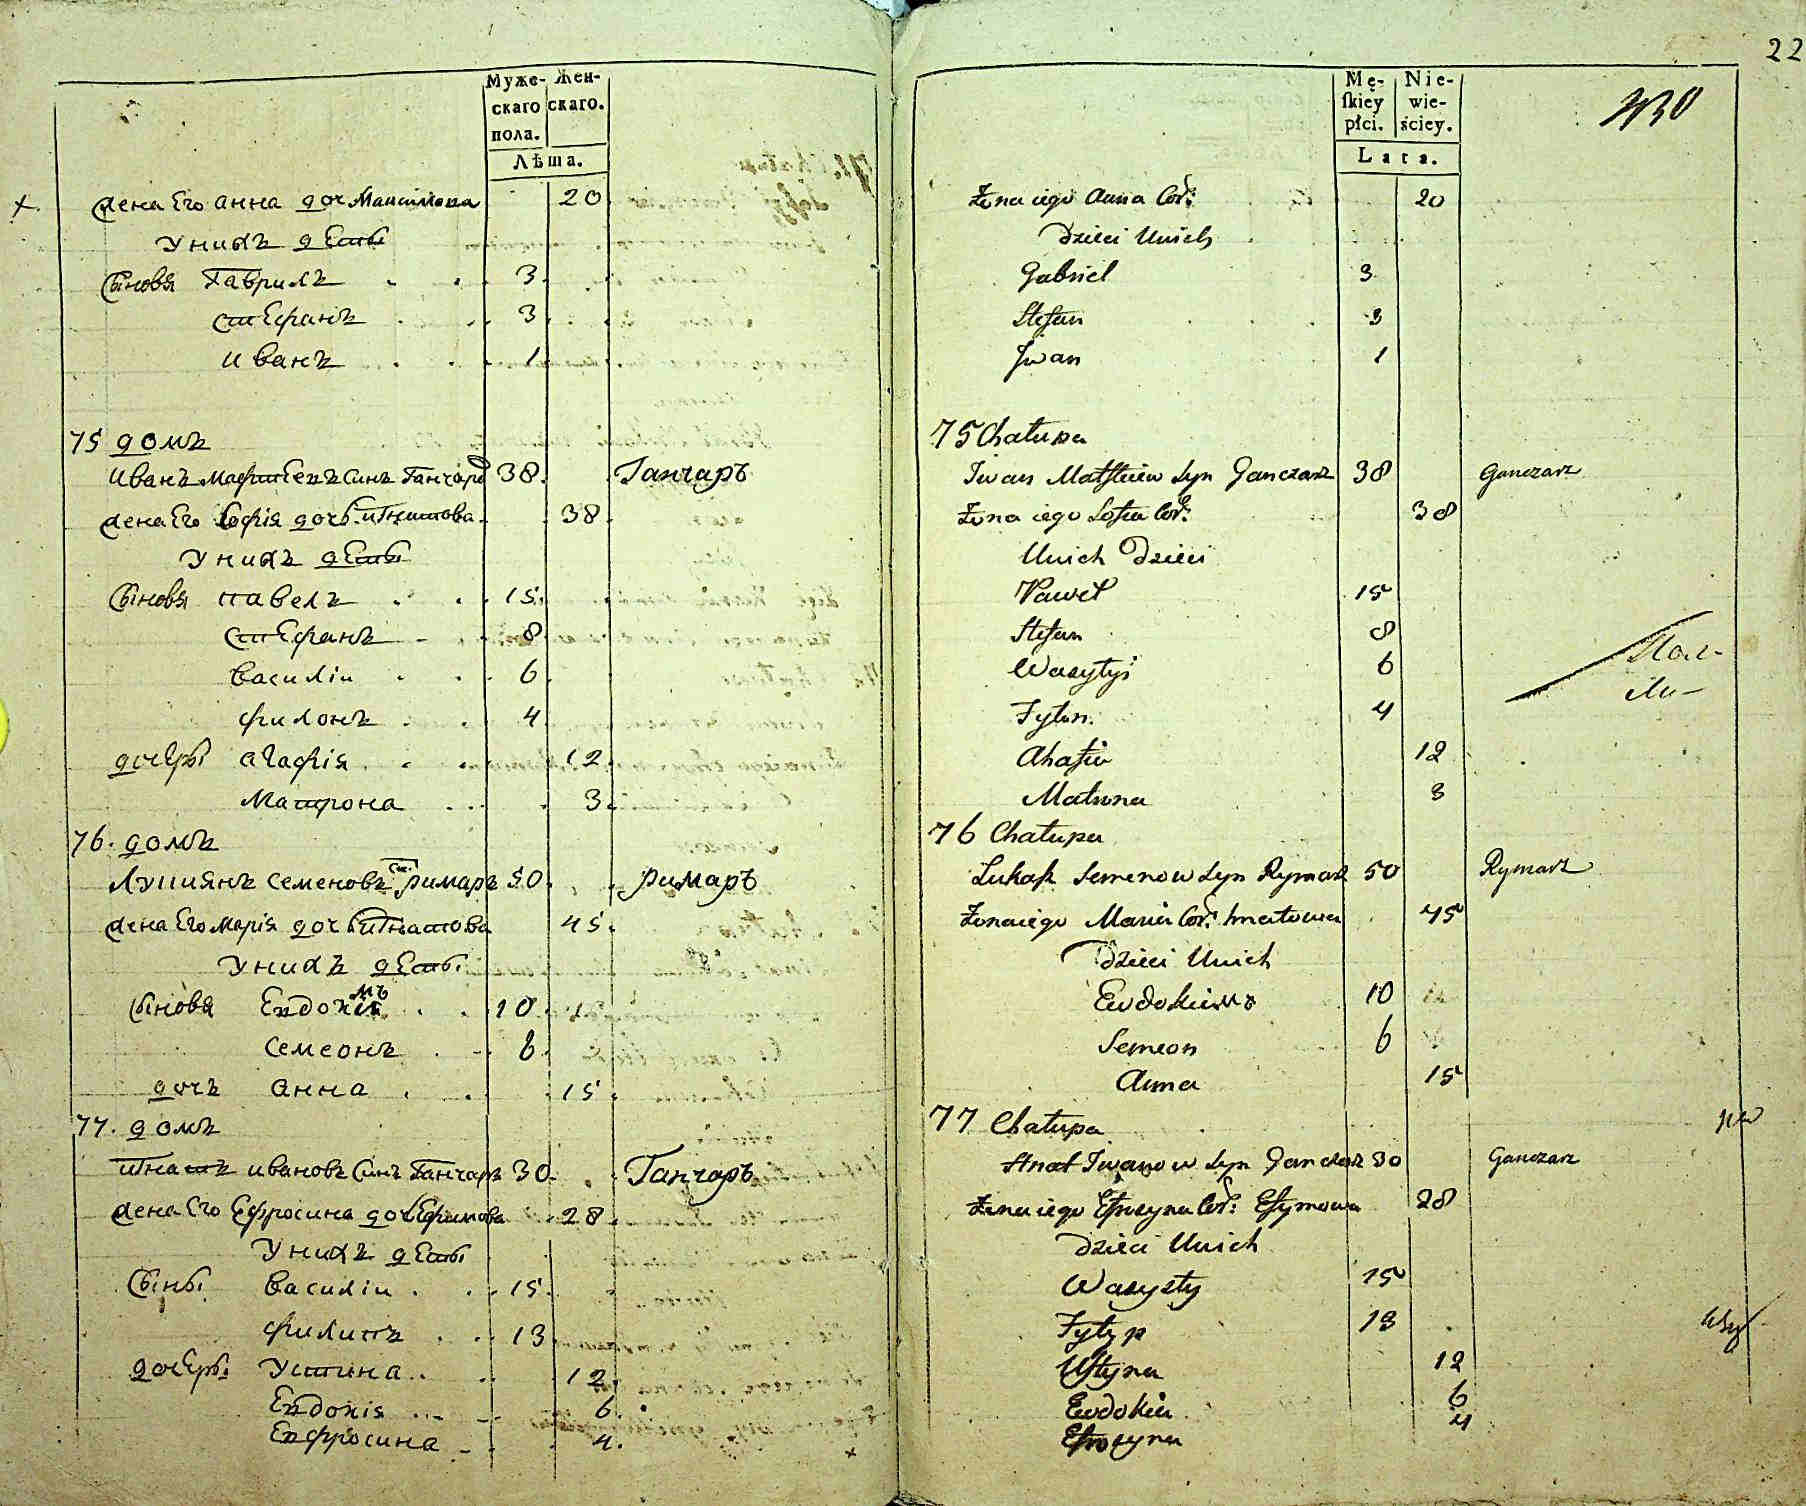 Муже-
скаго
пола.
Жен-
скаго.
Лѣта.
жена Его анна доч Максимова 20
У нихъ дети
Сыновя Гаврилъ 3
стефанъ 3
иванъ 1
75 домъ
иванъ Мафтеевъ синъ Ганчаръ 38. Ганчаръ
жена Его Софія дочь игнатова 38
У нихъ дети
Сыновя павелъ 15.
стефанъ 8
василіи 6
филонъ 4
дочеры агафія 12
Матрона 3.
76. домъ
Лукиянъ семеновъ син римаръ 50. римаръ
жена Его Марія дочь игнатова 45.
У нихъ дети
Сыновя Евдокимъ 10
семеонъ 6
дочъ анна 15
77. домъ
игнатъ ивановъ синъ Ганчаръ 30. Ганчаръ
жена Его Ефросина доч Ефимова 28
У нихъ дети
Сыны василіи 15.
филипъ 13
дочеры Устина 12
Евдокія 6.
Евфросина 4.
22
Mę-
ſkiey
płci.
Nie-
wie-
ściey.
Lata.
430
Żona iego Anna Cor: 20
Dzieci Unich
Gabriel 3
Stefan 3
Jwan 1
75 Chałupa
Iwan Matfieiew Syn Ganczarz 38 Ganczarz
Żona iego Sofia Cor: 38
Unich Dzieci
Paweł 15
Stefan 8
Wasylyi 6
Fylon. 4
Ahafia 12
Matrona 3
76 Chałupa
Łukasz Semenow Syn Rymarz 50 Rymarz
Żona iego Maria Cor: Hnatowa 45
Dzieci Unich
Ewdokimъ 10
Semeon 6
Anna 15
77 Chałupa
Hnat Jwanow Syn Ganczarz 30 Ganczarz
Żona iego Efrozyna Cor: Efymowa 28
Dzieci Unich
Wasyly 15
Fylyp 13
Ustyna 12
Ewdokia 6
Efrozyna 4